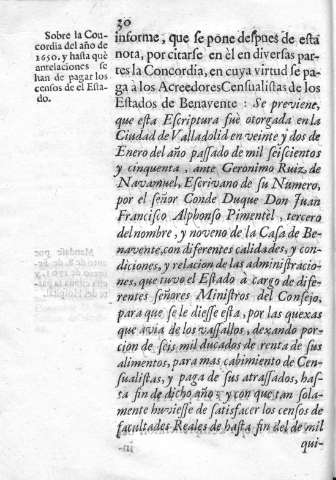 30
Sobre la Con-
cordia del año de
1650. y hasta què
antelaciones se
han de pagar los
censos de el Esta-
do.
informe, que se pone despues de esta
nota, por citarse en èl en diversas par-
tes la Concordia, en cuya virtud se pa-
ga à los Acreedores Censualistas de los
Estados de Benavente: Se previene,
que esta Escriptura fuè otorgada en la
Ciudad de Valladolid en veinte y dos de
Enero del año passado de mil seiscientos
y cinquenta, ante Geronimo Ruiz de
Navamuel, Escrivano de su Numero,
por el señor Conde Duque Don Juan
Francisco Alphonso Pimentèl, tercero
del nombre, y noveno de la Casa de Be-
navente, con diferentes calidades, y con-
diciones, y relacion de las administracio-
nes, que tuvo el Estado à cargo de dife-
rentes señores Ministros del Consejo,
para que se le diesse esta, por las quexas
que avia de los vassallos, dexando por-
cion de seis mil ducados de renta de sus
alimentos, para mas cabimiento de Cen-
sualistas, y paga de sus atrassados, has-
ta fin de dicho año; y con que tan sola-
mente huviesse de satisfacer los censos de
facultades Reales de hasta fin del de mil
qui-